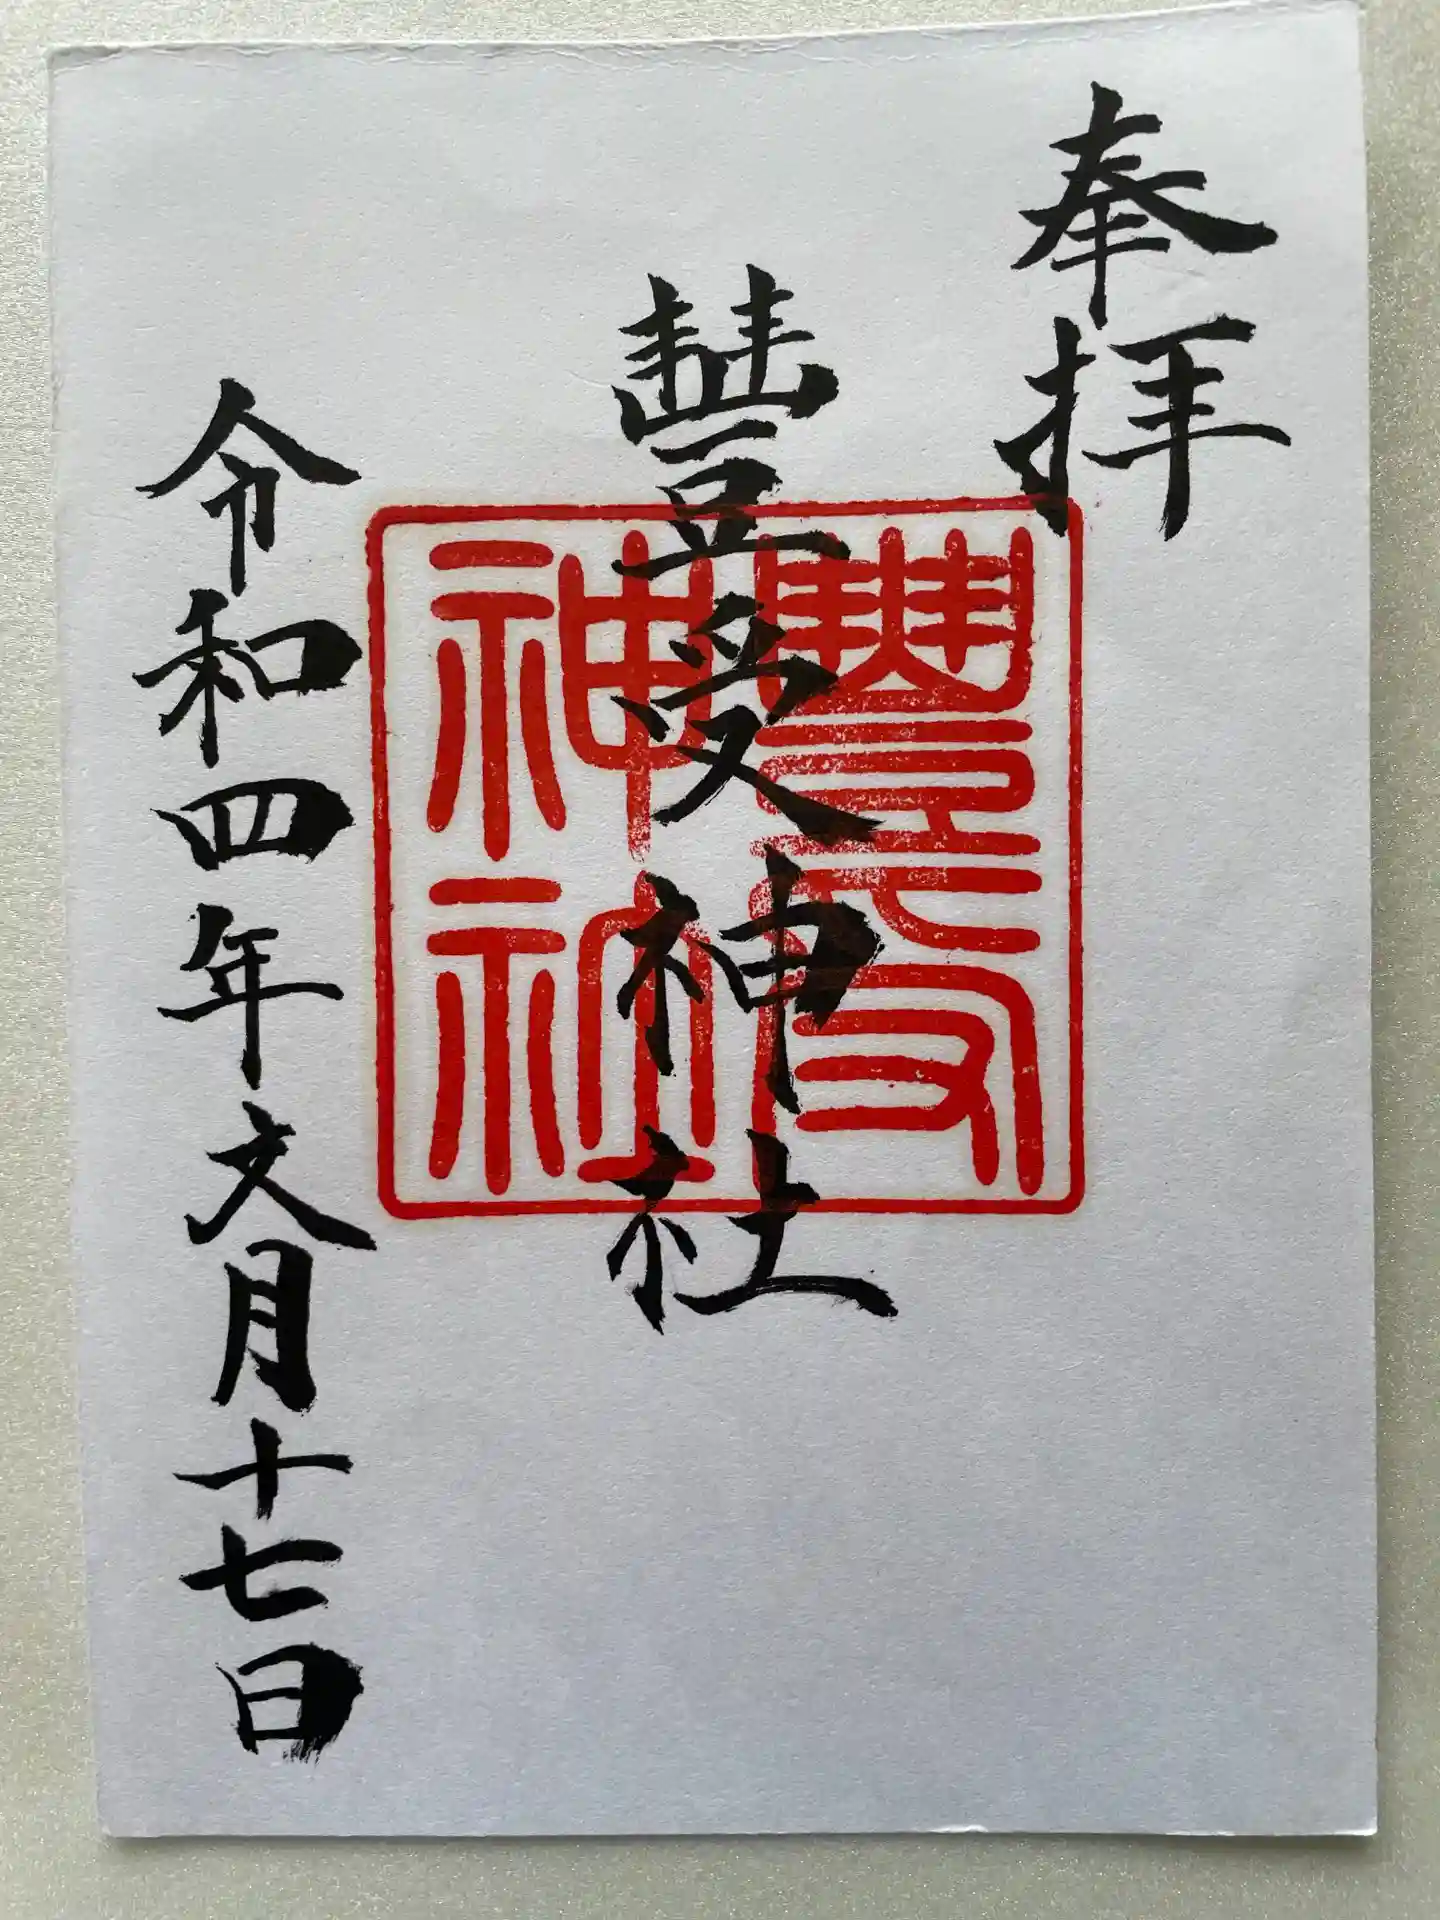 奉拝
豊受神社
令和四年文月十七日
豊受神社